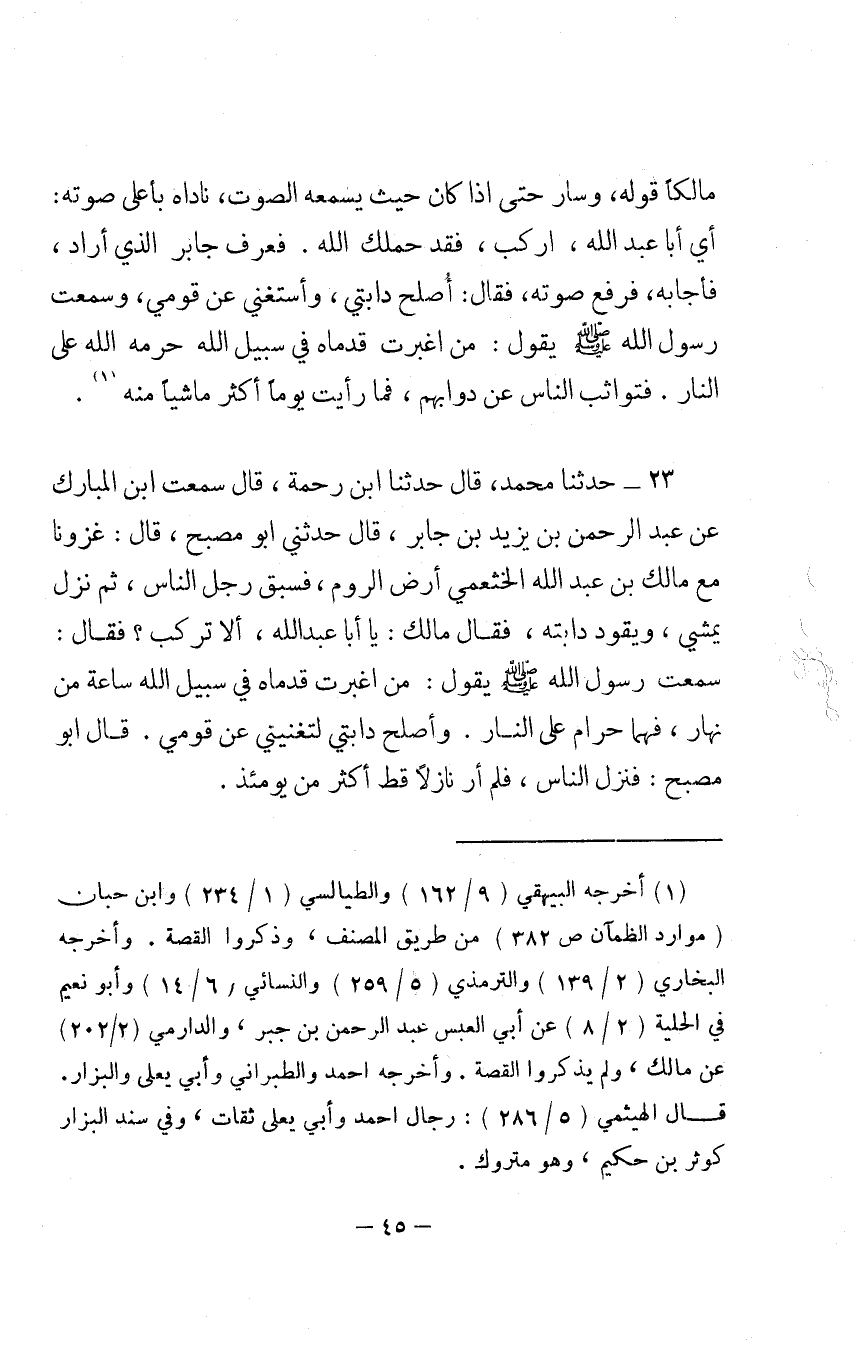 مالكاً قوله، وسار حتى اذا كان حيث يسمعه الصوت، ناداه بأعلى صوته:
أي أبا عبد الله ، اركب ، فقد حملك الله . فعرف جابر الذي أراد ،
فأجابه، فرفع صوته، فقال: أُصلح دابتي ، وأستغني عن قومي، وسمعت
رسول الله ﷺ يقول : من اغبرت قدماه في سبيل الله حرمه الله على
النار . فتواثب الناس عن دوابهم ، فما رأيت يوماً أكثر ماشياً منه (١) .
٢٣ – حدثنا محمد، قال حدثنا ابن رحمة ، قال سمعت ابن المبارك
عن عبد الرحمن بن يزيد بن جابر ، قال حدثني ابو مصبح ، قال : غزونا
مع مالك بن عبد الله الخثعمي أرض الروم ، فسبق رجل الناس ، ثم نزل
يمشي ، ويقود دابته ، فقال مالك : يا أبا عبدالله ، ألا تركب ؟ فقال :
سمعت رسول الله ﷺ يقول : من اغبرت قدماه في سبيل الله ساعة من
نهار ، فهما حرام على النار . وأصلح دابتي لتغنيني عن قومي . قال ابو
مصبح : فنزل الناس ، فلم أر نازلاً قط أكثر من يومئذ .
(١) أخرجه البيهقي ( ٩/ ١٦٢ ) والطيالسي ( ١/ ٢٣٤ ) وابن حبان
( موارد الظمآن ص ٣٨٢ ) من طريق المصنف ، وذكروا القصة . وأخرجه
البخاري ( ٢/ ١٣٩ ) والترمذي ( ٥/ ٢٥٩ ) والنسائي ( ٦/ ١٤ ) وأبو نعيم
في الحلية ( ٢/ ٨ ) عن أبي العبس عبد الرحمن بن جبر ، والدارمي (٢/ ٢٠٢)
عن مالك ، ولم يذكروا القصة . وأخرجه احمد والطبراني وأبي يعلى والبزار.
قال الهيثمي ( ٥/ ٢٨٦ ) : رجال احمد وأبي يعلى ثقات ، وفي سند البزار
كوثر بن حكيم ، وهو متروك .
– ٤٥ –